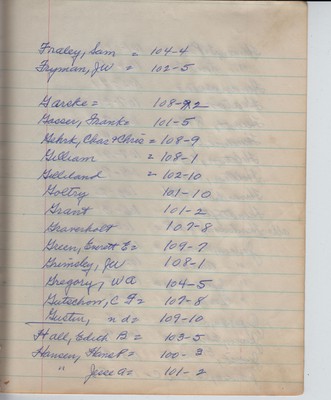 Fraley, Sam = 104-4
Fryman, JW = 102-5
Garske = 108-2
Gasser, Frank = 101-5
Gehrk, Chas & Chris = 108-9
Gilliam = 108-1
Gilliland = 102-10
Goltry 101-10
Grant 101-2
Gravenholt 107-8
Green, Everett E = 109-7
Grimsley, JW 108-1
Gregory, WA 104-5
Gutschow, C F = 107-8
Gustin, n d = 109-10
Hall, Edith B = 103-5
Hansen, Hans P = 100-3
" Jesse A = 101-2